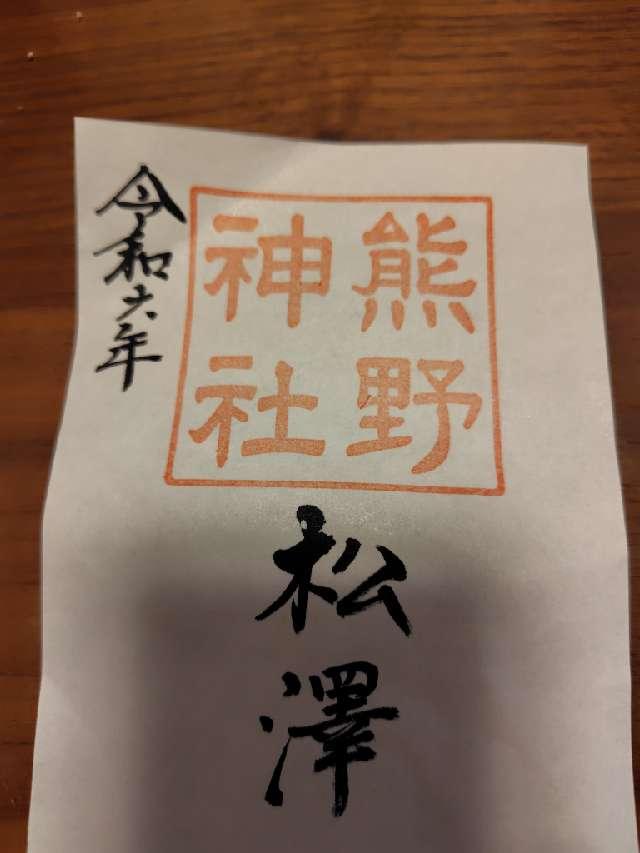 熊野
神社
松澤
令和六年